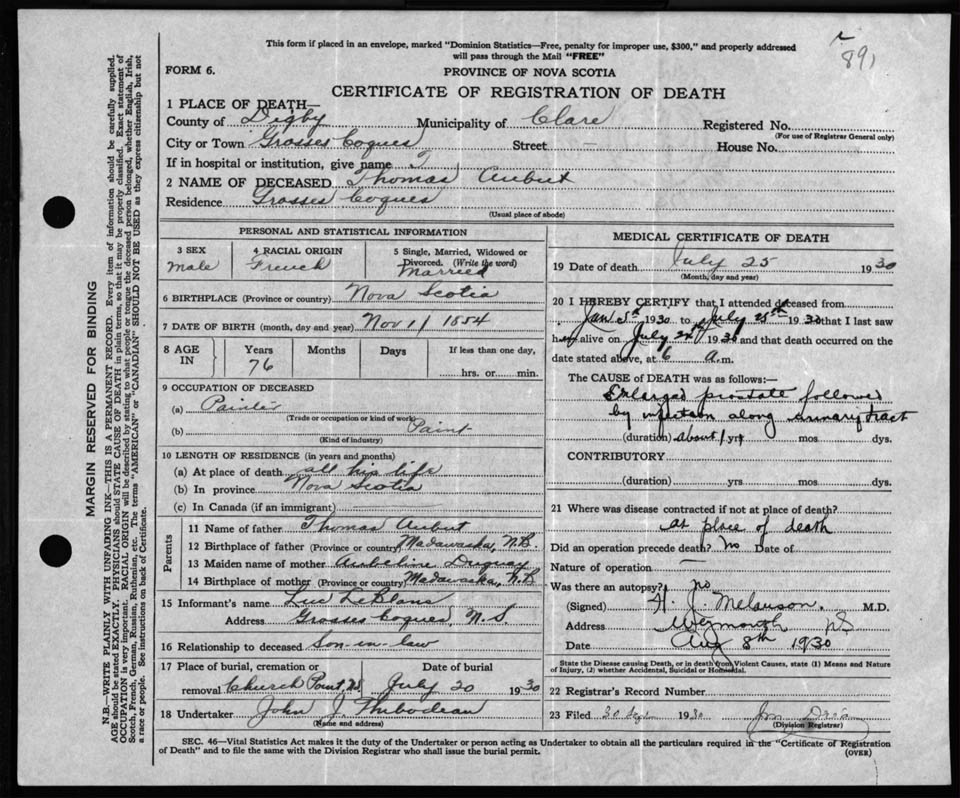 891
This form if placed in an envelope, marked "Dominion Statistics—Free, penalty for improper use, $300," and properly addressed
will pass through the Mail "FREE"
FORM 6.
PROVINCE OF NOVA SCOTIA
CERTIFICATE OF REGISTRATION OF DEATH
1 PLACE OF DEATH—
County of Digby Municipality of Clare Registered No.
(For use of Registrar General only)
City or Town Grosses Coques Street — House No.
If in hospital or institution, give name
2 NAME OF DECEASED Thomas Aubut
Residence Grosses Coques
(Usual place of abode)
PERSONAL AND STATISTICAL INFORMATION
3 SEX
Male
4 RACIAL ORIGIN
French
5 Single, Married, Widowed or
Divorced. (Write the word)
Married
6 BIRTHPLACE (Province or country) Nova Scotia
7 DATE OF BIRTH (month, day and year) Nov 11 1854
8 AGE IN
Years
76
Months
Days
If less than one day,
hrs. or min.
9 OCCUPATION OF DECEASED
(a) Painter
(Trade or occupation or kind of work)
(b) Paint
(Kind of industry)
10 LENGTH OF RESIDENCE (in years and months)
(a) At place of death all his life
(b) In province Nova Scotia
(c) In Canada (if an immigrant)
Parents
11 Name of father Thomas Aubut
12 Birthplace of father (Province or country) Madawaska, N.B.
13 Maiden name of mother Duguay
14 Birthplace of mother (Province or country) Madawaska, N.B
15 Informant's name Luc LeBlanc
Address Grosses Coques, N.S.
16 Relationship to deceased Son-in-law
17 Place of burial, cremation or Date of burial
removal Church Point NS. July 20 1930
18 Undertaker John J. Thibodeau
(Name and address)
MEDICAL CERTIFICATE OF DEATH
19 Date of death July 25 1930
(Month, day and year)
20 I HEREBY CERTIFY that I attended deceased from
Jan 1930 to July 25th 1930 that I last saw
h alive on July 24th 1930 and that death occurred on
date stated above, at 6 a.m.
The CAUSE OF DEATH was as follows:—
Enlarged prostate followed
by infection along urinary tract
(duration) about 1 yrs mos dys.
CONTRIBUTORY
(duration) yrs mos dys.
21 Where was disease contracted if not at place of death?
at place of death
Did an operation precede death? No Date of
Nature of operation —
Was there an autopsy? no
(Signed) Melanson. M.D.
Address Weymouth NS
Date Aug 8th 1930
State the Disease causing Death, or in death from Violent Causes, state (1) Means and Nature
of Injury, (2) whether Accidental, Suicidal or Homicidal.
22 Registrar's Record Number
23 Filed 30 Sept 1930
(Division Registrar)
SEC. 46—Vital Statistics Act makes it the duty of the Undertaker or person acting as Undertaker to obtain all the particulars required in the "Certificate of Registration
of Death" and to file the same with the Division Registrar who shall issue the burial permit.
(OVER)
MARGIN RESERVED FOR BINDING
N.B—WRITE PLAINLY WITH UNFADING INK—THIS IS A PERMANENT RECORD. Every item of information should be carefully supplied.
AGE should be stated EXACTLY. PHYSICIANS should STATE CAUSE OF DEATH in plain terms, so that it may be properly classified. Exact statement of
OCCUPATION is very important. RACIAL ORIGIN will be described by stating to what people or tongue the deceased person belonged, whether English, Irish,
Scotch, French, German, Russian, Ruthenian, etc. The terms "AMERICAN" or "CANADIAN" SHOULD NOT BE USED as they express citizenship but not
a race or people. See instructions on back of Certificate.